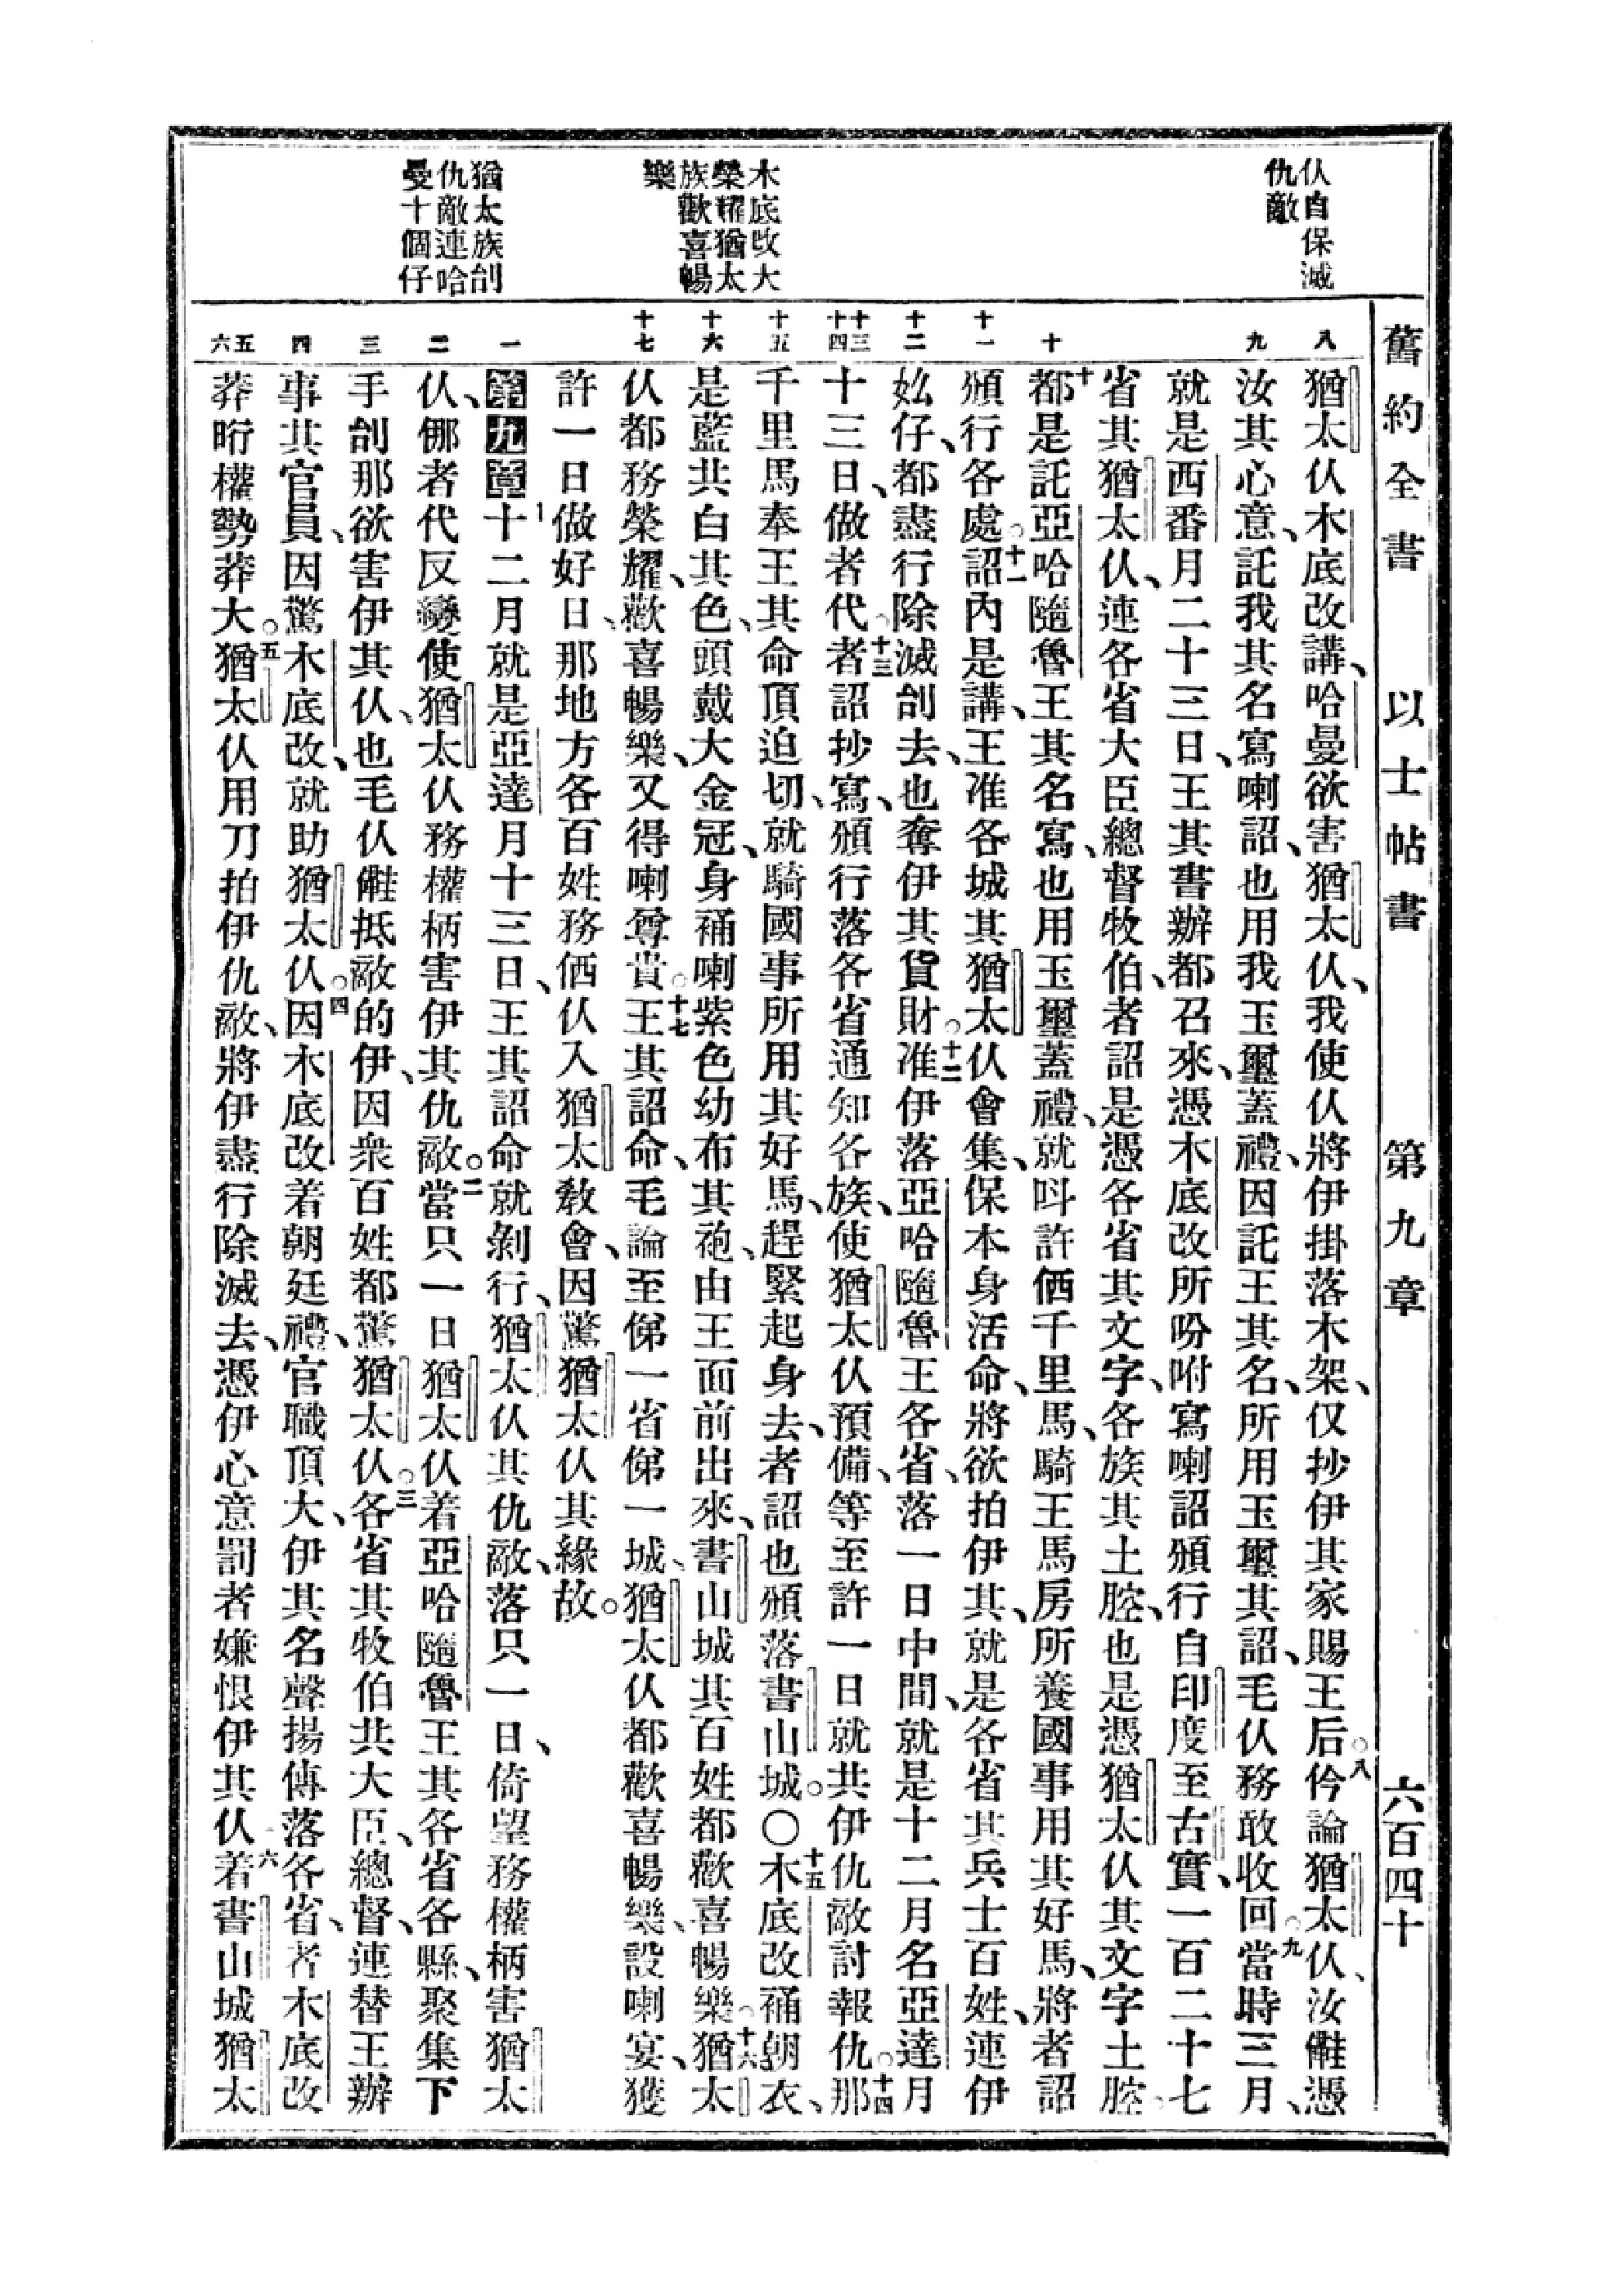 舊約全書 以士帖書 第九章 六百四十
仈自保滅
仇敵
木底改大
榮耀猶太
族歡喜暢
樂
猶太族刣
仇敵連哈
曼十個仔
八
九
十
十一
十二
十三
十四
十五
十六
十七
一
二
三
四
五
六
猶太仈木底改講、哈曼欲害猶太仈、我使仈將伊掛落木架、仅抄伊其家賜王后。八伶論猶太仈、汝㒕憑
汝其心意、託我其名寫喇詔、也用我玉璽蓋禮、因託王其名、所用玉璽其詔、毛仈務敢收回。九當時三月、
就是西番月二十三日、王其書辦都召來、憑木底改所吩咐寫喇詔頒行自印度至古實、一百二十七
省其猶太仈、連各省大臣總督牧伯、者詔是憑各省其文字、各族其土腔、也是憑猶太仈其文字土腔。
十都是託亞哈隨魯王其名寫、也用玉璽蓋禮、就呌許価千里馬、騎王馬房所養國事用其好馬、將者詔
頒行各處。十一詔內是講、王准各城其猶太仈會集、保本身活命、將欲拍伊其、就是各省其兵士百姓、連伊
奴仔、都盡行除滅刣去、也奪伊其貨財。十二准伊落亞哈隨魯王各省、落一日中間、就是十二月名亞達月
十三日、做者代。十三者詔抄寫、頒行落各省通知各族、使猶太仈預備、等至許一日就共伊仇敵討報仇。十四那
千里馬奉王其命頂迫切、就騎國事所用其好馬、趕緊起身去、者詔也頒落書山城。〇十五木底改裲朝衣、
是藍共白其色、頭戴大金冠、身裲喇紫色幼布其袍、由王面前出來、書山城其百姓都歡喜暢樂。十六猶太
仈都務榮耀、歡喜暢樂、又得喇尊貴。十七王其詔命、毛論至俤一省俤一城、猶太仈都歡喜暢樂、設喇宴、獲
許一日做好日、那地方各百姓務価仈入猶太教會、因驚猶太仈其緣故。
第九章一十二月就是亞達月十三日、王其詔命就剝行、猶太仈其仇敵、落只一日、倚望務權柄害猶太
仈、㑚者代反變、使猶太仈務權柄害伊其仇敵。二當只一日猶太仈着亞哈隨魯王其各省各縣、聚集下
手刣那欲害伊其仈、也毛仈㒕抵敵的伊、因衆百姓都驚猶太仈。三各省其牧伯共大臣、總督、連替王辦
事其官員、因驚木底改、就助猶太仈。四因木底改着朝廷禮、官職頂大、伊其名聲揚傳落各省、者木底改
莽𠯗權勢莽大。五猶太仈用刀拍伊仇敵、將伊盡行除滅去、憑伊心意罰者嫌恨伊其仈。六着書山城猶太